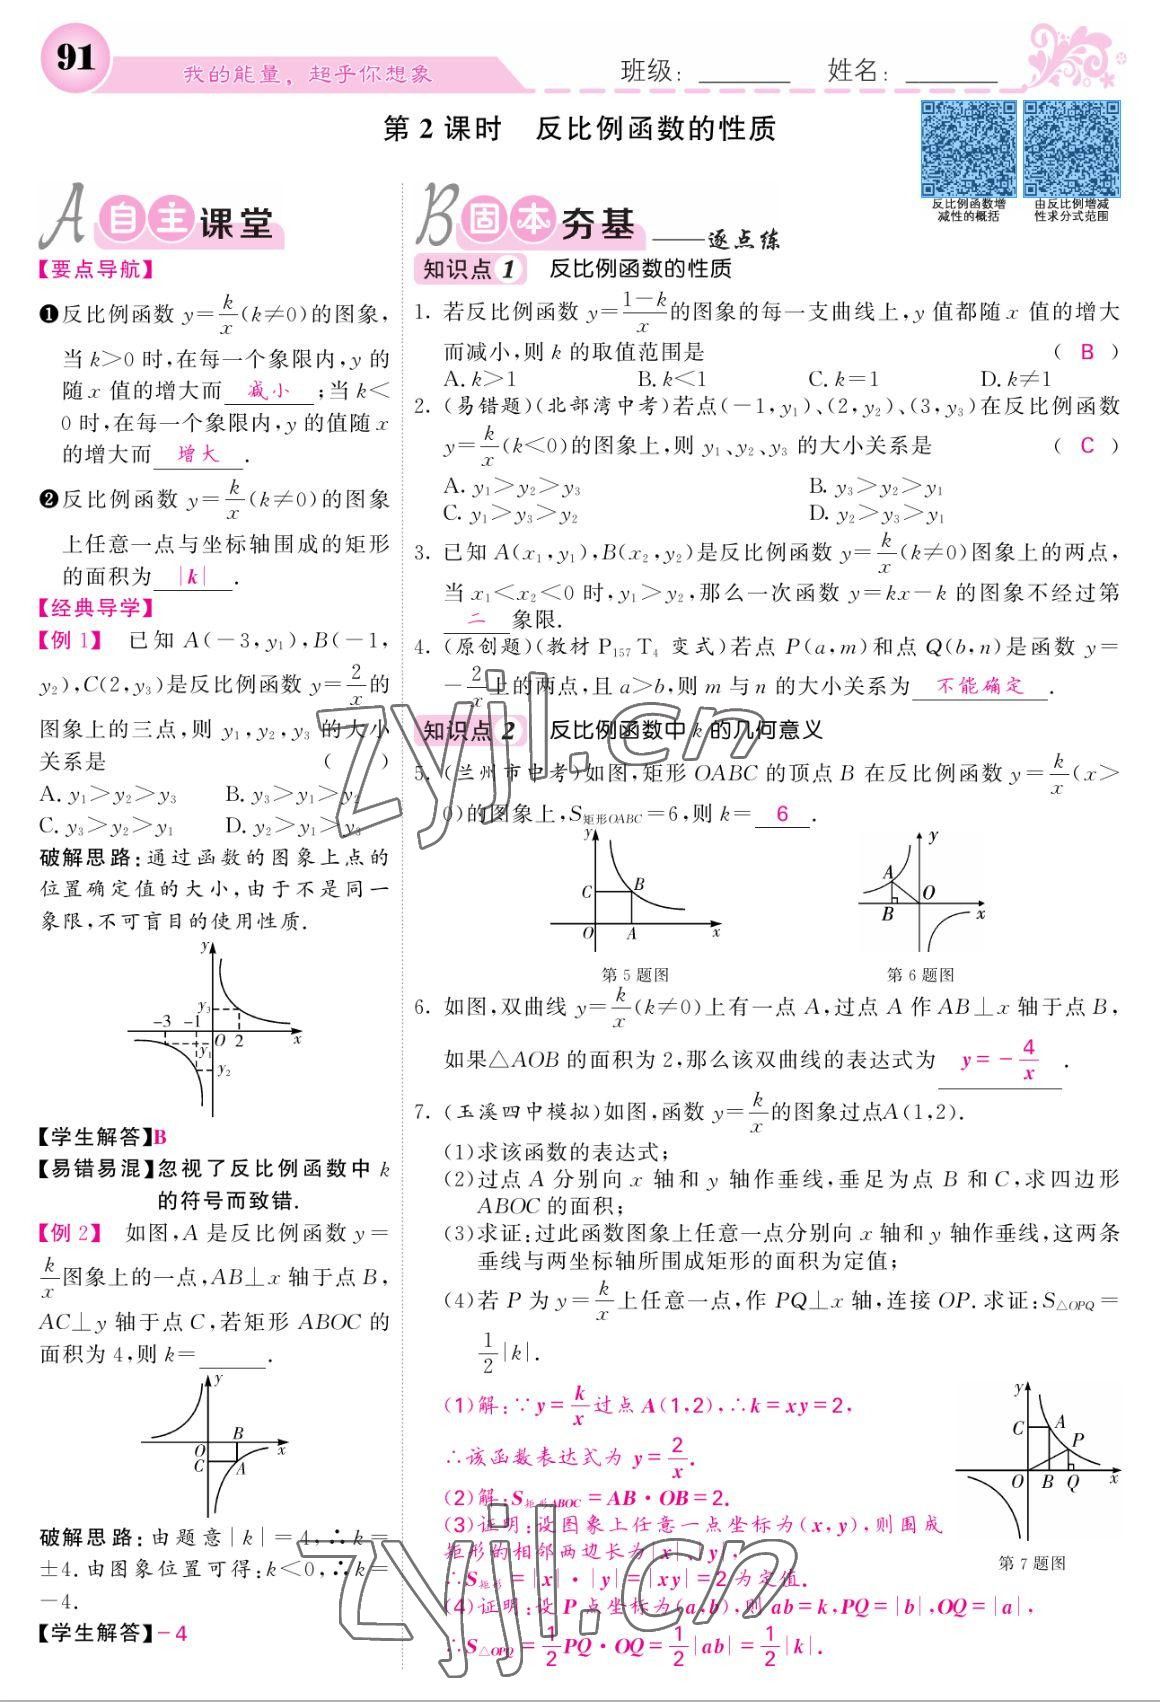 91
我的能量，超乎你想象
班级：______ 姓名：______
第 2 课时 反比例函数的性质
反比例函数增
减性的概括
由反比例增减
性求分式范围
A 自主课堂
【要点导航】
❶反比例函数 y=k/x(k≠0)的图象,
当 k>0 时,在每一个象限内,y 的
随 x 值的增大而 减小 ;当 k<
0 时,在每一个象限内,y 的值随 x
的增大而 增大 .
❷反比例函数 y=k/x(k≠0)的图象
上任意一点与坐标轴围成的矩形
的面积为 |k| .
【经典导学】
【例 1】 已知 A(-3,y₁),B(-1,
y₂),C(2,y₃)是反比例函数 y=2/x的
图象上的三点,则 y₁,y₂,y₃ 的大小
关系是 ( )
A. y₁>y₂>y₃ B. y₃>y₁>y₂
C. y₃>y₂>y₁ D. y₂>y₁>y₃
破解思路:通过函数的图象上点的
位置确定值的大小,由于不是同一
象限,不可盲目的使用性质.
y
y₃
-3 -1
O 2 x
y₁
y₂
【学生解答】B
【易错易混】忽视了反比例函数中 k
的符号而致错.
【例 2】 如图,A 是反比例函数 y=
k/x图象上的一点,AB⊥x 轴于点 B,
AC⊥y 轴于点 C,若矩形 ABOC 的
面积为 4,则 k=______.
y
B
O x
C A
破解思路:由题意|k|=4,∴k=
±4.由图象位置可得:k<0,∴k=
-4.
【学生解答】-4
B 固本夯基 ——逐点练
知识点 1 反比例函数的性质
1. 若反比例函数 y=(1-k)/x的图象的每一支曲线上,y 值都随 x 值的增大
而减小,则 k 的取值范围是 ( B )
A. k>1 B. k<1 C. k=1 D. k≠1
2. (易错题)(北部湾中考)若点(-1,y₁)、(2,y₂)、(3,y₃)在反比例函数
y=k/x(k<0)的图象上,则 y₁、y₂、y₃ 的大小关系是 ( C )
A. y₁>y₂>y₃ B. y₃>y₂>y₁
C. y₁>y₃>y₂ D. y₂>y₃>y₁
3. 已知 A(x₁,y₁),B(x₂,y₂)是反比例函数 y=k/x(k≠0)图象上的两点,
当 x₁<x₂<0 时,y₁>y₂,那么一次函数 y=kx-k 的图象不经过第
二 象限.
4. (原创题)(教材 P₁₅₇ T₄ 变式)若点 P(a,m)和点 Q(b,n)是函数 y=
-2/x上的两点,且 a>b,则 m 与 n 的大小关系为 不能确定 .
知识点 2 反比例函数中 k 的几何意义
5. (兰州市中考)如图,矩形 OABC 的顶点 B 在反比例函数 y=k/x(x>
0)的图象上,S矩形OABC=6,则 k= 6 .
y
C B
O A x
第 5 题图
y
A
O
B x
第 6 题图
6. 如图,双曲线 y=k/x(k≠0)上有一点 A,过点 A 作 AB⊥x 轴于点 B,
如果△AOB 的面积为 2,那么该双曲线的表达式为 y=-4/x .
7. (玉溪四中模拟)如图,函数 y=k/x的图象过点A(1,2).
(1)求该函数的表达式;
(2)过点 A 分别向 x 轴和 y 轴作垂线,垂足为点 B 和 C,求四边形
ABOC 的面积;
(3)求证:过此函数图象上任意一点分别向 x 轴和 y 轴作垂线,这两条
垂线与两坐标轴所围成矩形的面积为定值;
(4)若 P 为 y=k/x上任意一点,作 PQ⊥x 轴,连接 OP.求证:S△OPQ=
1/2|k|.
(1)解:∵y=k/x过点 A(1,2),∴k=xy=2,
∴该函数表达式为 y=2/x.
(2)解:S矩形ABOC=AB·OB=2.
(3)证明:设图象上任意一点坐标为(x,y),则围成
矩形的相邻两边长为|x|、|y|,
∴S矩形=|x|·|y|=|xy|=2为定值.
(4)证明:设 P 点坐标为(a,b),则 ab=k,PQ=|b|,OQ=|a|,
∴S△OPQ=1/2PQ·OQ=1/2|ab|=1/2|k|.
y
C A
P
O B Q x
第 7 题图
zyjl.cn
zyjl.cn